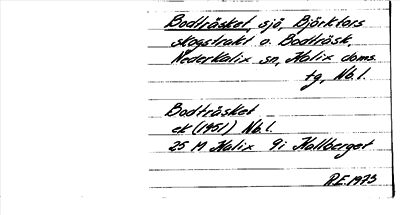 Bodträsket sjö, Björkfors
skogstrakt o. Bodträsk,
Nederkalix sn, Kalix doms.
tg, Nb. l.
Bodträsket
ek (1951) Nb. l.
25 M Kalix 9i Kallberget
R.E. 1973